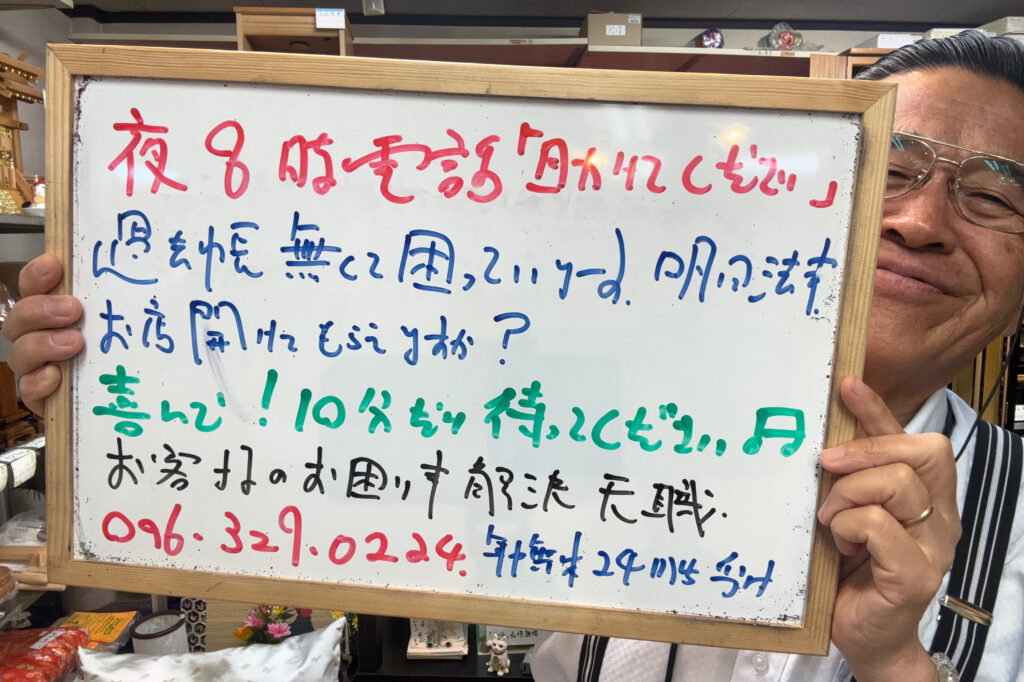 夜8時電話「助けてください」
過去帳無くて困っています。明日法事
お店開けてもらえますか?
喜んで!10分だけ待ってください♫
お客様のお困り事解決天職.
096.329.0224. 年中無休24時受付